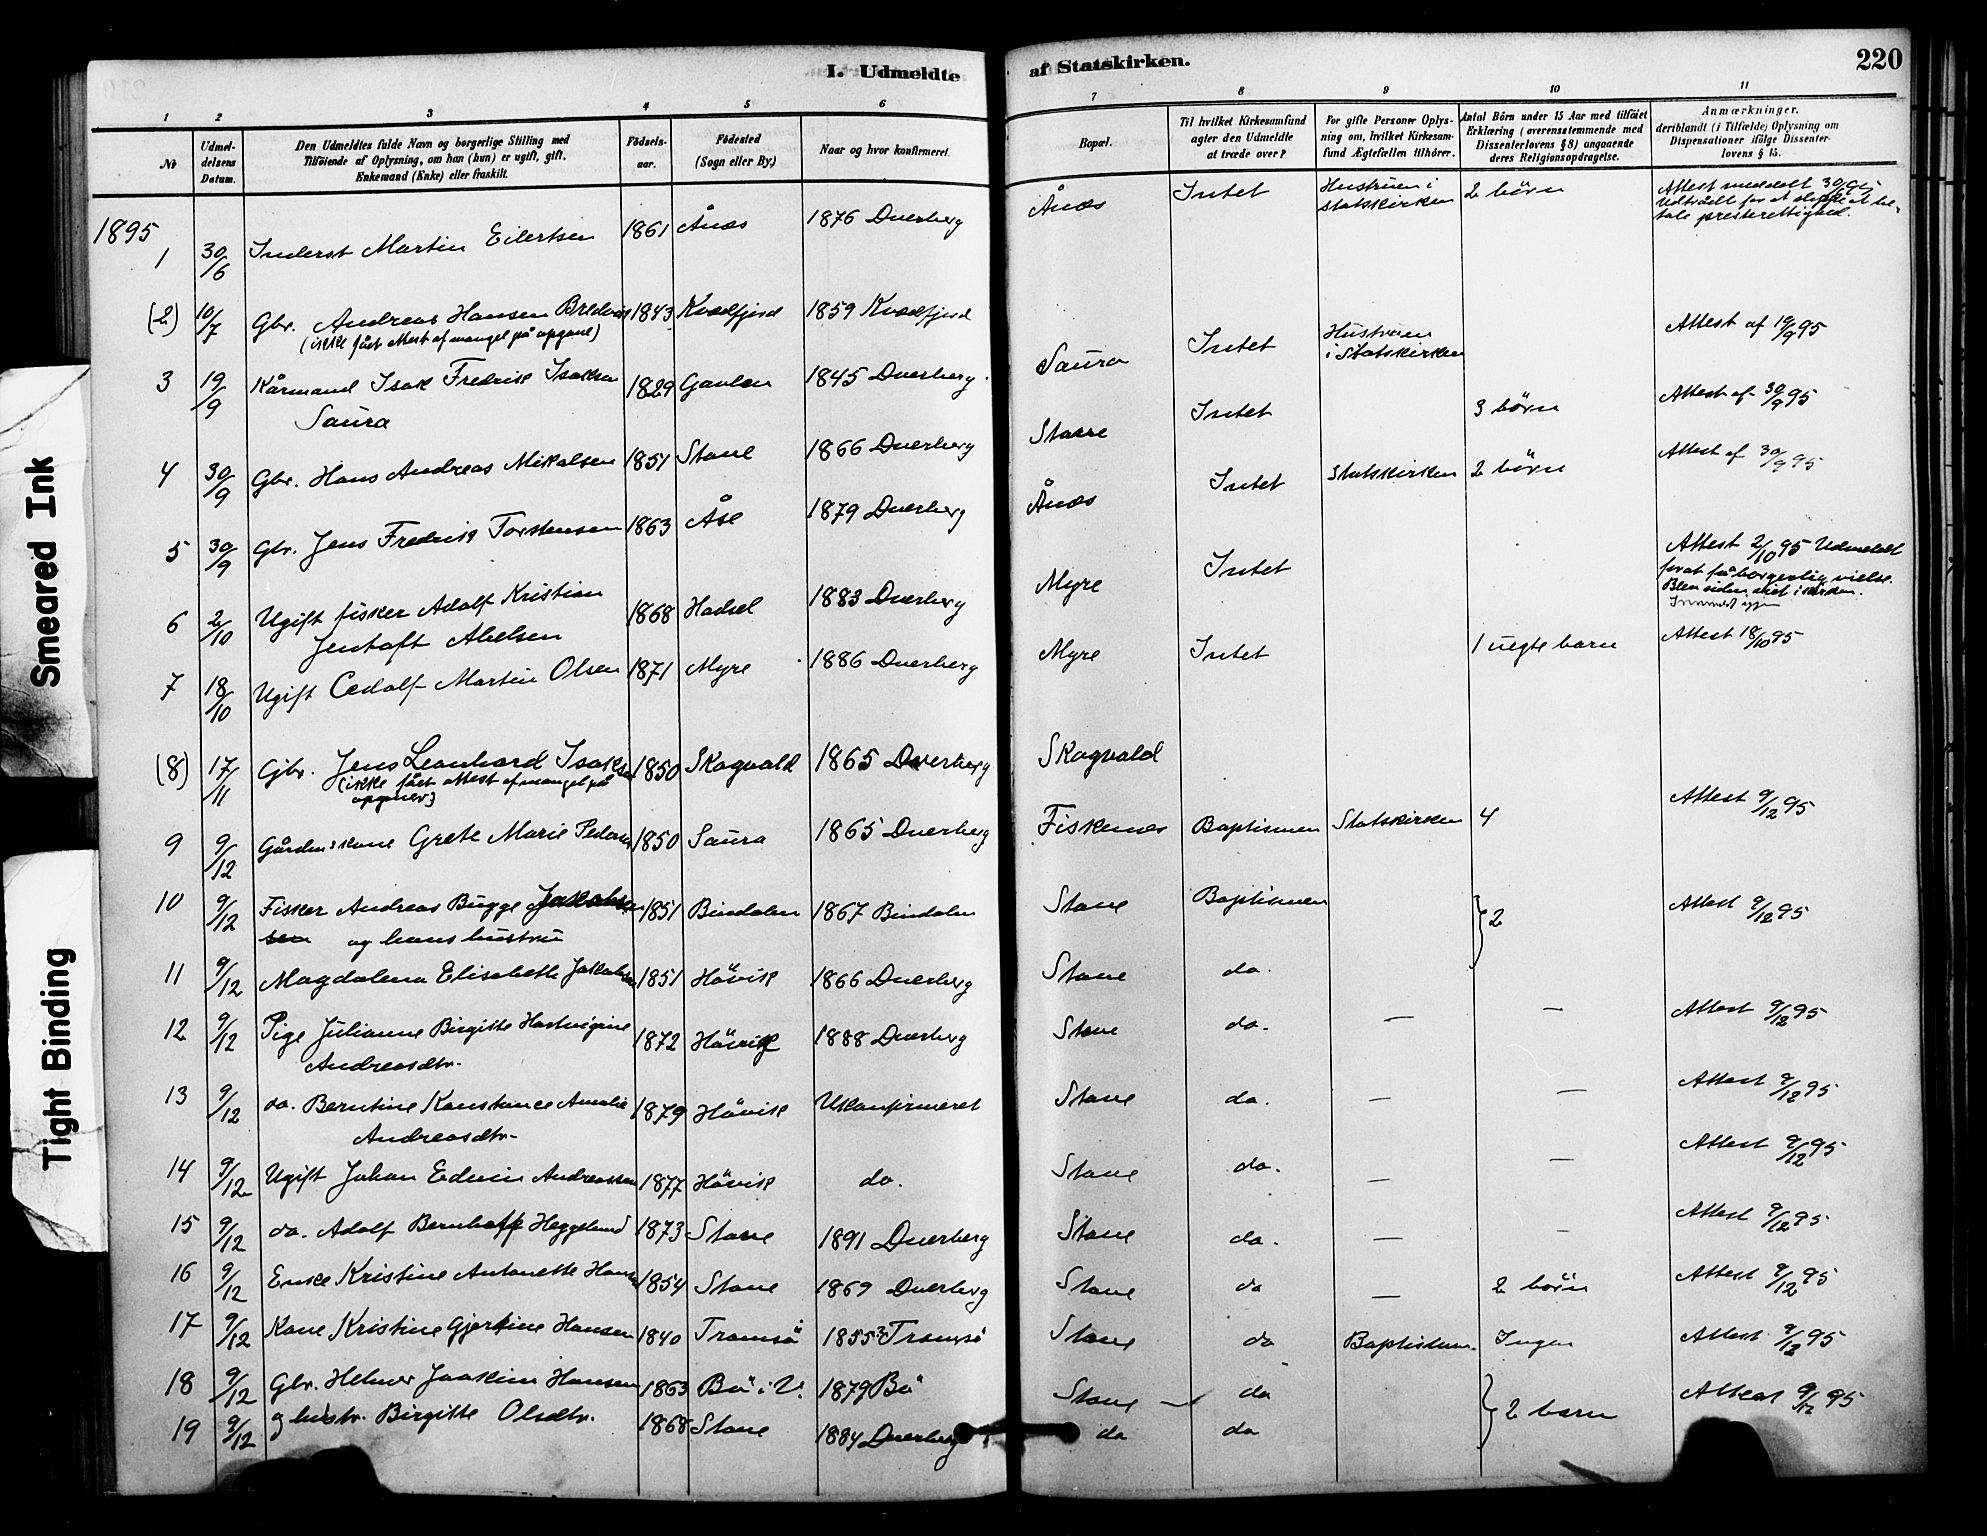 I. Udmeldte af Statskirken. 220
1 2 3 4 5 6 7 8 9 10 11
No
Udmeldelsens Datum.
Den Udmeldtes fulde Navn og borgerlige Stilling med
Tilføiende af Oplysning, om han (hun) er ugift, gift,
Enkemand (Enke) eller fraskilt.
Fødselsaar.
Fødested
(Sogn eller By.)
Naar og hvor konfirmeret.
Bopæl.
Til hvilket Kirkesamfund
agter den Udmeldte
at træde over?
For gifte Personer Oplysning om, hvilket Kirkesamfund Ægtefællen tilhører.
Antal Børn under 15 Aar med tilføiet
Erklæring (overensstemmende med
Dissenterlovens § 8) angaaende
deres Religionsopdragelse.
Anmærkninger,
deriblandt (i Tilfælde) Oplysning om
Dispensationer ifølge Dissenterlovens § 15.
1895
1 30/6 Inderst Martin Eilertsen 1861 Ånæs 1876 Dverberg Ånæs Intet Hustruen i statskirken 2 börn Attest meddelt 30/6 95
Udtrådt for at slippe at betale presterettighed.
(2) 10/7 Gbr. Andreas Hansen 1843 Kvædfjord 1859 Kvædfjord
(ikke fået attest af mangel på opgave)
3 19/9 Kårmand Isak Fredrik Isaksen 1829 Gavlen 1845 Dverberg Saura Intet Hustruen i Statskirken Attest af 19/9 95
Saura
4 30/9 Gbr. Hans Andreas Mikalsen 1851 Stave 1866 Dverberg Stave Intet 3 börn Attest af 30/9 95
5 30/9 Gbr. Jens Fredrik Torstensen 1863 Åse 1879 Dverberg Ånæs Intet Statskirken 2 börn Attest af 30/9 95
6 2/10 Ugift fisker Adolf Kristian 1868 Hadsel 1883 Dverberg Myre Intet Attest 2/10 95 Udmeldt
Jentoft Abelsen
for at få borgerlig vielse.
Blev siden viet i kirken.
7 18/10 Ugift Cedolf Martin Olsen 1871 Myre 1886 Dverberg Myre Intet 1 uegte barn Attest 18/10 95
(8) 17/11 Gbr. Jens Leonhard Isaksen 1850 Skogvold 1865 Dverberg Skogvold
(ikke fået attest af mangel på
opgaver)
9 9/12 Gårdmskone Grete Marie Pedersen 1850 Saura 1865 Dverberg Fiskenes Baptismen Statskirken 4 Attest 9/12 95
10 9/12 Fisker Andreas Bugge Jakobsen 1851 Bindalen 1867 Bindalen Stave Baptismen } 2 Attest 9/12 95
sen og hans hustru
11 9/12 Magdalena Elisabeth Jakobsen 1851 Hövik 1866 Dverberg Stave do.
12 9/12 Pige Julianne Birgitte Hartvigine 1872 Hövik 1888 Dverberg Stave do. — — Attest 9/12 95
Andreasdtr.
13 9/12 do. Berntine Konstance Amalie 1879 Hövik Ukonfirmeret Stave do. — — Attest 9/12 95
Andreasdtr.
14 9/12 Ugift Johan Edvin Andreassen 1877 Hövik do. Stave do. — — Attest 9/12 95
15 9/12 do. Adolf Bernhoff Heggelund 1873 Stave 1891 Dverberg Stave do. — — Attest 9/12 95
16 9/12 Enke Kristine Antonette Hansen 1854 Stave 1869 Dverberg Stave do — 2 börn Attest 9/12 95
17 9/12 Kone Kristine Gjertine Hansen 1840 Tromsö 1855? Tromsö Stave do Baptismen. Ingen Attest 9/12 95
18 9/12 Gbr. Helmer Joakim Hansen 1863 Bö i V. 1879 Bö Stave — do } 2 barn Attest 9/12 95
19 9/12 og hustr. Birgitte Olsdtr. 1868 Stave 1884 Dverberg do do
Smeared Ink
Tight Binding